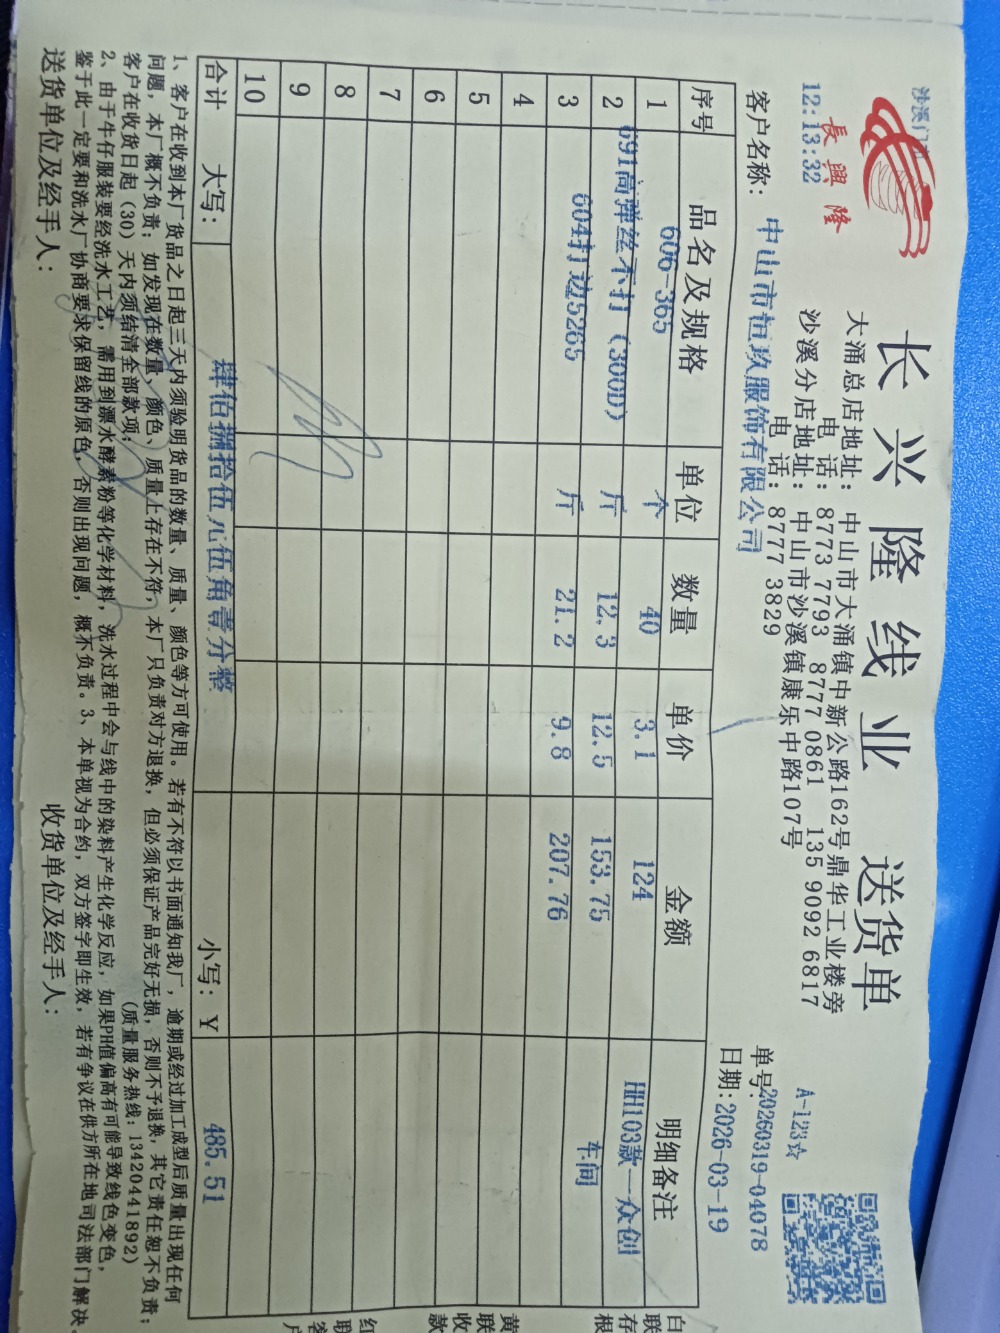 沙溪门
12:13:32
長興隆
长兴隆线业 送货单
A-123☆
大涌总店地址：中山市大涌镇中新公路162号鼎华工业楼旁
电 话：8773 7793 8777 0861 135 9092 6817
沙溪分店地址：中山市沙溪镇康乐中路107号
电 话：8777 3829
单号:20260319-04078
客户名称： 中山市恒玖服饰有限公司
日期:2026-03-19
序号 品名及规格 单位 数量 单价 金额 明细备注
1 606-365 个 40 3.1 124 HH103款—众创
2 691高弹丝不打（300D） 斤 12.3 12.5 153.75 车间
3 604打边5265 斤 21.2 9.8 207.76
4
5
6
7
8
9
10
合计 大写： 肆佰捌拾伍元伍角壹分整 小写：Y 485.51
1、客户在收到本厂货品之日起三天内须验明货品的数量、质量、颜色等方可使用。若有不符以书面通知我厂，逾期或经过加工成型后质量出现任何
问题，本厂概不负责；如发现在数量、颜色、质量上存在不符，本厂只负责对方退换，但必须保证产品完好无损，否则不予退换，其它责任恕不负责；
客户在收货日起（30）天内须结清全部款项； （质量服务热线：13420441892）
2、由于牛仔服装要经洗水工艺，需用到漂水酵素粉等化学材料，洗水过程中会与线中的染料产生化学反应，如果PH值偏高有可能导致线色变色，
鉴于此一定要和洗水厂协商要求保留线的原色，否则出现问题，概不负责。3、本单视为合约，双方签字即生效，若有争议在供方所在地司法部门解决。
送货单位及经手人： 收货单位及经手人：
白联存根
黄联收款
红联客户